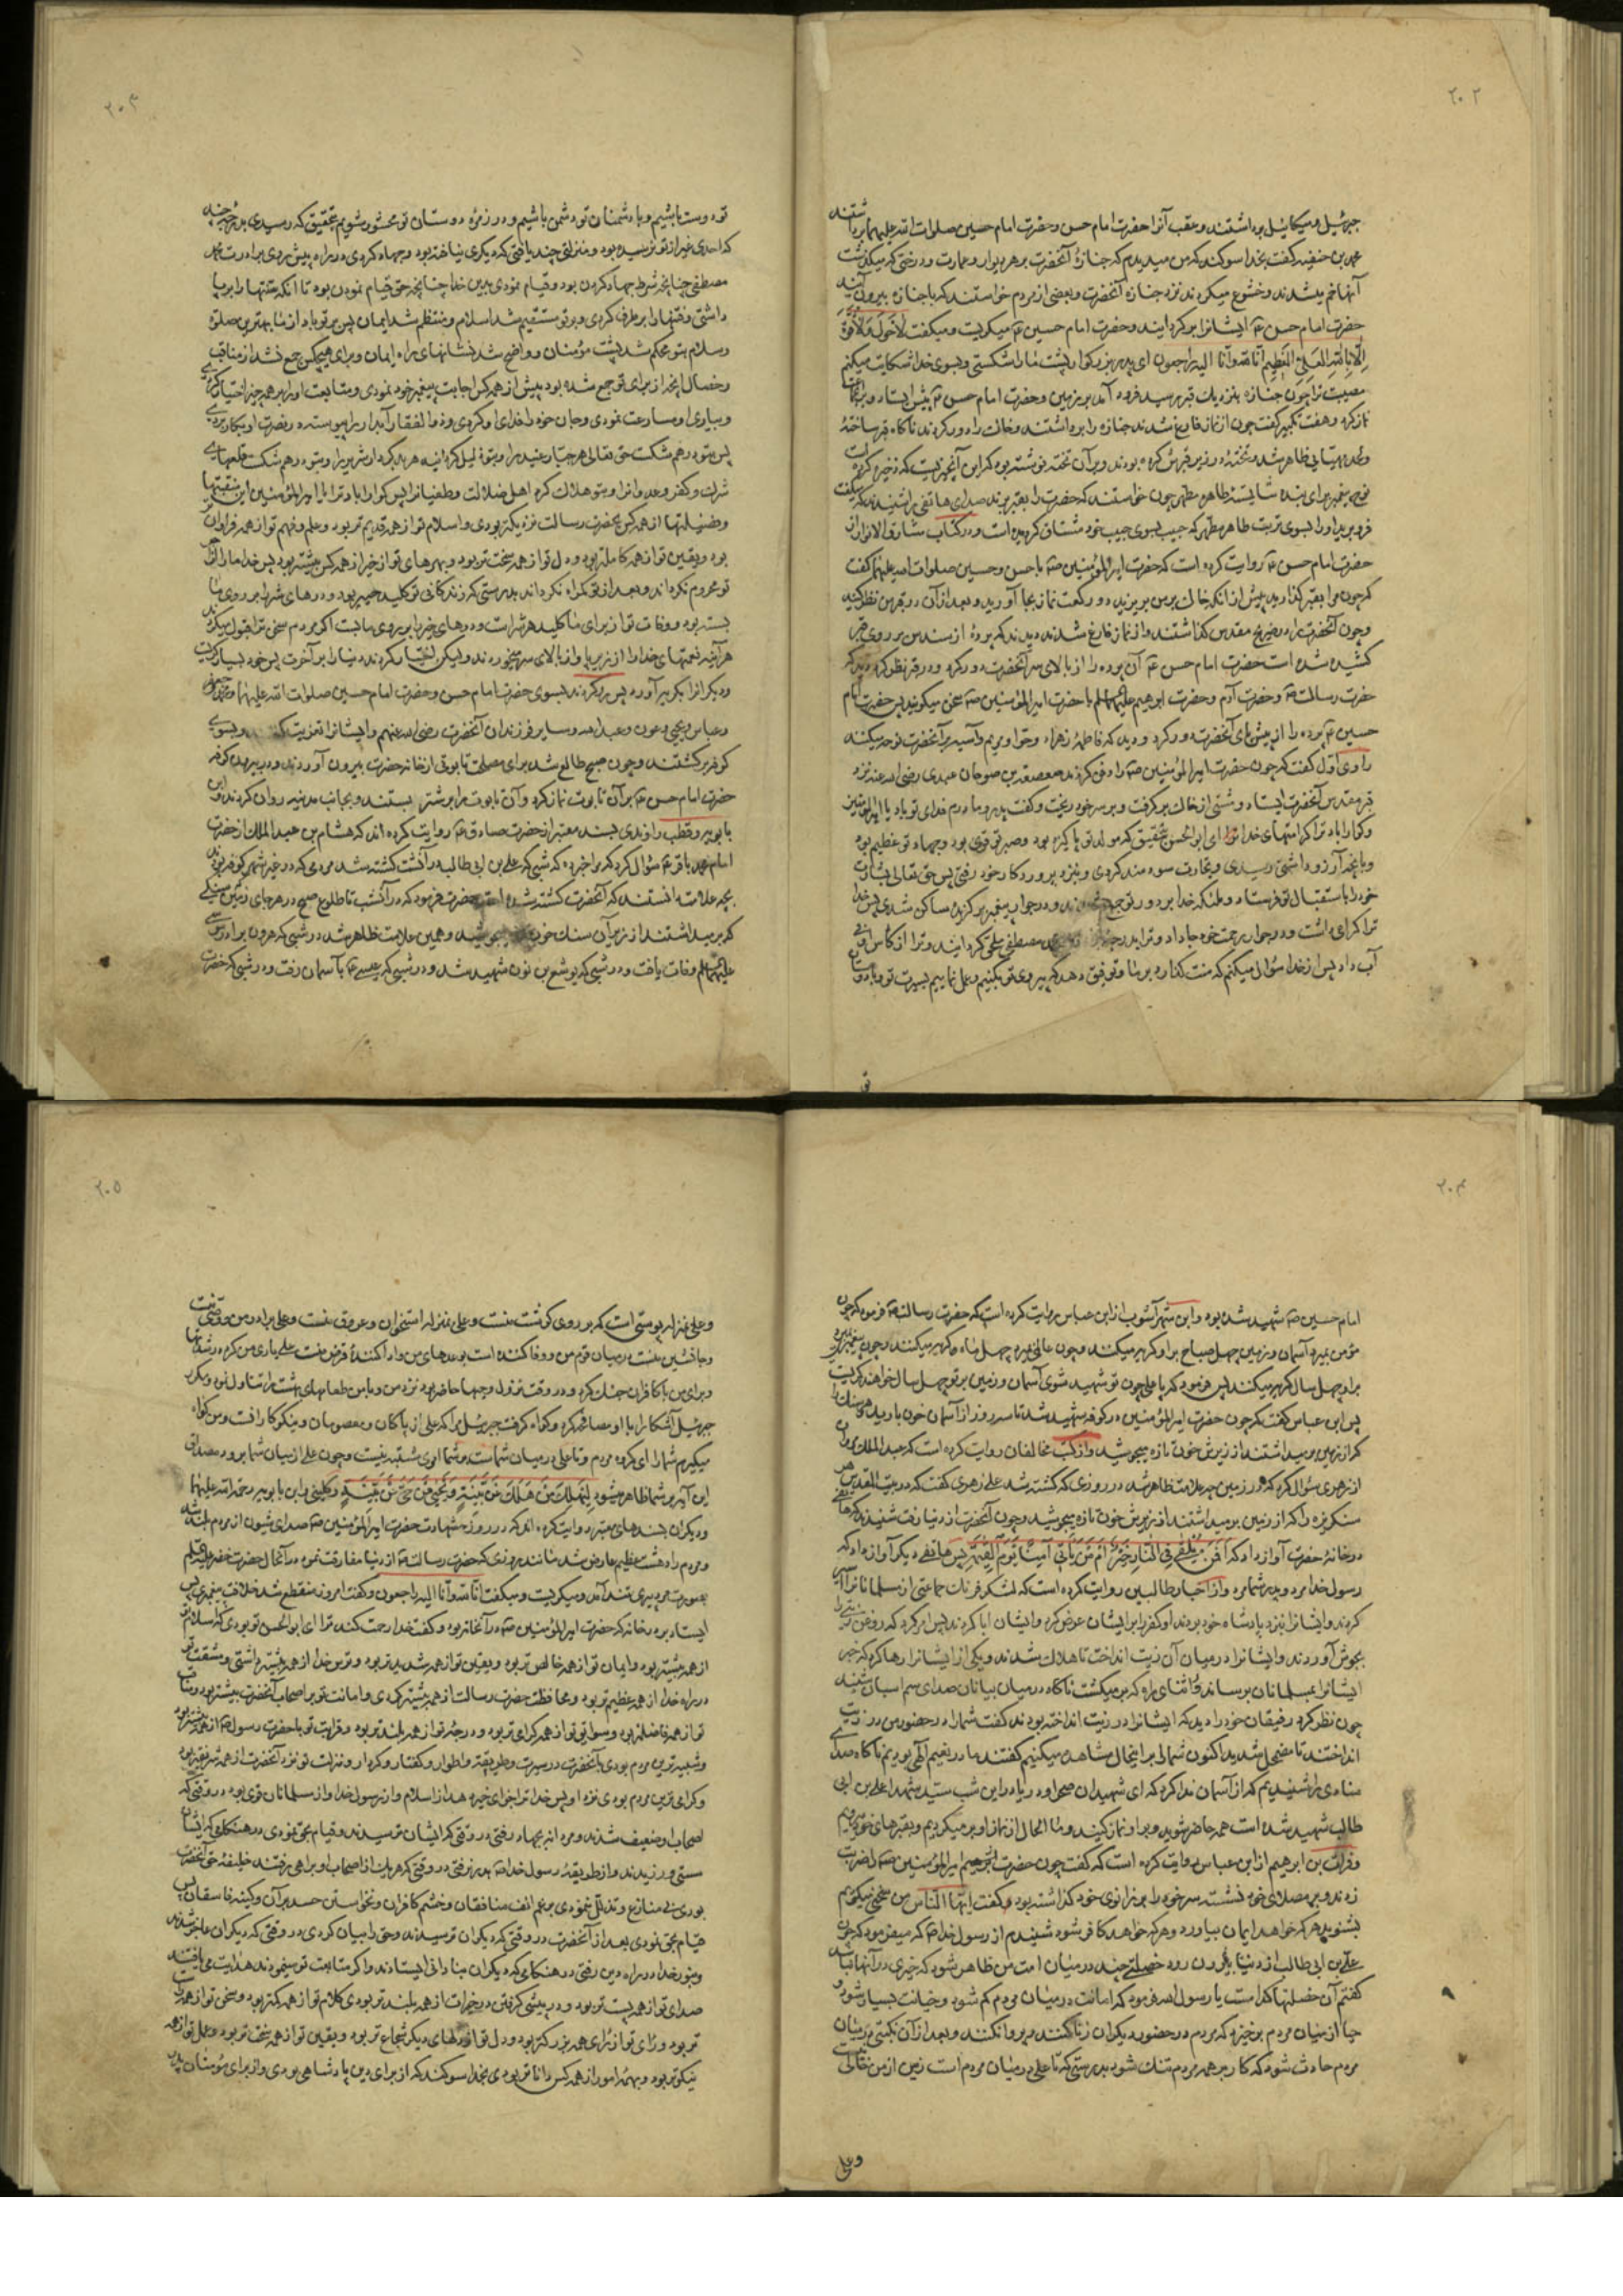 ۲۰۲
جبرئیل و میکائیل برداشتند و عقب آنرا حضرت امام حسن و حضرت امام حسین صلوات الله علیهما برداشتند
محمد بن حنفیه گفت بخدا سوکند که من میدیدم که جنازهٔ آنحضرت بر هر دیوار و عمارت و درختی که میکذشت
آنها خم میشدند و خشوع میکردند نزد جنازه آنحضرت و بعضی از مردم خواستند که با جنازه بیرون آیند
حضرت امام حسن ع ایشانرا برکردانیدند و حضرت امام حسین ع میکریست و میکفت لاحول ولاقوة
الا بالله العلی العظیم انا لله وانا الیه راجعون ای پدر بزرکوار پشت ما را شکستی و بسوی خدا شکایت میکنم
مصیبت ترا چون جنازه بنزدیك قبر رسید فرود آمد بر زمین و حضرت امام حسن ع پیش ایستاد و بر آنحضرت
نماز کرد و هفت تکبیر کفت چون از نماز فارغ شدند جنازه را برداشتند و خاك را دور کردند ناکاه قبر ساختهٔ
ولحد مهیّایی ظاهر شد و تختهٔ در زیر قبر فرش کرده بودند و بر آن تخته نوشته بود که این آنچیزیست که ذخیره کرده است
نوح پیغمبر برای بنده شایسته طاهر مطهر چون خواستند که حضرت را بقبر برند صدای هاتفی را شنیدند که میکفت
فرو برید او را بسوی تربت طاهر مطهر که حبیب بسوی حبیب خود مشتاق کردیده است و در کتاب مشارق الانوار از
حضرت امام حسن ع روایت کرده است که حضرت امیرالمؤمنین ص با حسن و حسین صلوات الله علیهما کفت
که چون مرا بقبر کذارید پیش از انکه خاك بر من بریزید دو رکعت نماز بجا آورید و بعد از آن در قبر من نظر کنید
و چون آنحضرت را در ضریح مقدس کذاشتند و از نماز فارغ شدند دیدند که پردهٔ از سندس بر روی قبر
کشیده شده است حضرت امام حسن ع آن پرده را از بالای سر آنحضرت دور کرد و در قبر نظر کرد دید که
حضرت رسالت ص و حضرت آدم و حضرت ابرهیم علیهم السلم با حضرت امیرالمؤمنین ص سخن میکویند پس حضرت امام
حسین ع پرده را از پیش پای آنحضرت دور کرد و دید که فاطمهٔ زهراء و حوا و مریم و آسیه بر آنحضرت نوحه میکنند
راوی اوّل کفت که چون حضرت امیرالمؤمنین ص را دفن کردند صعصعة بن صوحان عبدی رضی الله عنه نزد
قبر مقدس آنحضرت ایستاد و مشتی از خاك بر کرفت و بر سر خود ریخت و کفت پدر و مادرم فدای تو باد یا امیرالمؤمنین
و کوارا باد ترا کرامتهای خدا ای ابوالحسن بتحقیق که مولد تو پاکیزه بود و صبر تو قوی بود و جهاد تو عظیم بود
و بانچه آرزو داشتی رسیدی و تجارت سودمند کردی و بنزد پروردکار خود رفتی پس حق تعالی بشارت
خود را باستقبال تو فرستاد و ملئکه خدا بر دور تو جمع شدند و در جوار پیغمبر برکزیده ساکن شدی پس خدا
ترا کرامی داشت و در جوار رحمت خود جا داد و ترا بدرجهٔ مصطفی ملحق کردانید و ترا از کاس اوفی
آب داد پس از خدا سؤال میکنم که منت کذارد بر ما و توفیق دهد که پیروی تو بکنیم و عمل نماییم بسیرت تو و با دوستان
۲۰۳
تو دوست باشیم و با دشمنان تو دشمن باشیم و در زمرهٔ دوستان تو محشور شویم بتحقیق که رسیدی بدرجهٔ چند
که احدی غیر از تو نرسیده بود و منزلتی چند یافتی که دیکری نیافته بود و جهاد کردی در راه پیش روی برادرت محمد
مصطفی چنانچه شرط جهاد کردن بود و قیام نمودی بدین خدا چنانچه حق قیام نمودن بود تا آنکه سنّتها را برپا
داشتی و فتنها را برطرف کردی و بتو مستقیم شد اسلام و منتظم شد ایمان پس بر تو باد از ما بهترین صلوة
و سلام بتو محکم شد پشت مؤمنان و واضح شد نشانهای راه ایمان و برای هیچکس جمع نشد از مناقب
و خصال آنچه از برای تو جمع شده بود پیش از همه کس اجابت پیغمبر خود نمودی و متابعت او را بر همه چیز اختیار کردی
و بیاری او مسارعت نمودی و جان خود را فدای او کردی و ذوالفقار آبدار را پیوسته در نصرت او بکار بردی
پس بتو درهم شکست حق تعالی هر جبّار عنید را و بتو ذلیل کردانید هر بدکردار شریر را و بتو درهم شکست قلعهای
شرك و کفر و عدوانرا و بتو هلاك کرد اهل ضلالت و طغیانرا پس کوارا باد ترا یا امیرالمؤمنین این منقبتها
و فضیلتها از همه کس بحضرت رسالت نزدیکتر بودی و اسلام تو از همه قدیم تر بود و علم و فهم تو از همه فراوان
بود و یقین تو از همه کاملتر بود و دل تو از همه سخت تر بود و بهره‌های تو از خیر از همه کس بیشتر بود پس خدا ما را از اجر
تو محروم نکرداند و بعد از تو کمراه نکرداند بدرستی که زندکانی تو کلید خیر بود و درهای شر را بر روی ما
بسته بود و وفات تو از برای ما کلید هر شراست و درهای خیر را بر روی ما بست اکر مردم سخن ترا قبول میکردند
هر آینه نعمتهای خدا را از زیر پا و از بالای سر میخوردند ولیکن اختیار کردند دنیا را بر آخرت پس خود بسیار کریست
و دیکرانرا بکریه آورد پس رو کردند بسوی حضرت امام حسن و حضرت امام حسین صلوات الله علیهما و محمد و جعفر
و عباس و یحیی و عون و عبدالله و سایر فرزندان آنحضرت رضی الله عنهم و ایشانرا تعزیت کفتند و بسوی
کوفه برکشتند و چون صبح طالع شد برای مصلحت تابوتی از خانه حضرت بیرون آوردند و در بیرون کوفه
حضرت امام حسن ع بر آن تابوت نماز کرد و آن تابوت را بر شتر بستند و بجانب مدینه روان کردند و ابن
بابویه و قطب راوندی بسند معتبر از حضرت صادق ع روایت کرده اند که هشام بن عبدالملك از حضرت
امام محمد باقر ع سؤال کرد که مرا خبر ده که شبی که علی بن ابی طالب در آن شب کشته شد مردمی که در غیر شهر کوفه بودند
بچه علامت دانستند که آنحضرت کشته شده است حضرت فرمود که در آنشب تا طلوع صبح در هر جای زمین سنکی
که بر میداشتند از زیر آن سنك خون میجوشید و همین علامت ظاهر شد در شبی که هرون برادر موسی
علیهما السلم وفات یافت و در شبی که یوشع بن نون شهید شد و در شبی که عیسی ع بآسمان رفت و در شبی که حضرت
۲۰۴
امام حسین ص شهید شده بود و ابن شهرآشوب از ابن عباس روایت کرده است که حضرت رسالت ص فرمود که چون
مؤمن بمیرد آسمان و زمین چهل صباح بر او کریه میکنند و چون عالمی بمیرد چهل ماه بر او کریه میکنند و چون پیغمبری بمیرد
بر او چهل سال کریه میکنند پس فرمود که یا علی چون تو شهید شوی آسمان و زمین بر تو چهل سال خواهند کریست
پس ابن عباس کفت که چون حضرت امیرالمؤمنین در کوفه شهید شد تا سه روز از آسمان خون بارید و هر سنك را
که از زمین بر میداشتند از زیرش خون تازه میجوشید و از کتب مخالفان روایت کرده است که عبدالملك مروان
از زهری سؤال کرد که در زمین چه علامت ظاهر شد در روزی که کشته شد علی زهری کفت که در بیت المقدس هر
سنکریزه را که از زمین بر میداشتند از زیرش خون تازه میجوشید و چون آنحضرت از دنیا رفت شنیدند که هاتفی
در خانهٔ حضرت آواز داد که أفمن یلقی فی النار خیر أم من یأتی آمنا یوم القیمة پس هاتفی دیکر آواز داد که
رسول خدا مرد و پدر شما مرد و از اخبار طالبین روایت کرده است که لشکر فرنك جماعتی از مسلمانانرا اسیر
کردند و ایشانرا بنزد پادشاه خود بردند او کفر را بر ایشان عرض کرد و ایشان ابا کردند پس امر کرد که روغن زیتی را
بجوش آوردند و ایشانرا در میان آن زیت انداخت تا هلاك شدند و یکی از ایشانرا رها کرد که خبر
ایشانرا بمسلمانان برساند در اثنای راه که برمیکشت ناکاه در میان بیابان صدای سم اسبان شنید
چون نظر کرد رفیقان خود را دید که ایشانرا در زیت انداخته بودند کفت شما را در حضور من در زیت
انداختند تا مضمحل شدید اکنون شما را بر اینحال مشاهده میکنیم کفتند ما در نعیم الهی بودیم ناکاه صدای
منادی را شنیدیم که از آسمان ندا کرد که ای شهیدان صحرا و دریا در این شب سیّد شهدا علی بن ابی
طالب شهید شده است همه حاضر شوید و بر او نماز کنید و ما الحال از نماز او برمیکردیم و بقبرهای خود میرویم
و فرات بن ابرهیم از ابن عباس روایت کرده است که کفت چون حضرت امیرالمؤمنین ص را ضربت
زدند و بر مصلای خود نشسته سر خود را بر زانوی خود کذاشته بود و میکفت ایّها النّاس من سخنی میکویم
بشنوید هر که خواهد ایمان بیاورد و هر که خواهد کافر شود شنیدم از رسول خدا ص که میفرمود که چون
علی بن ابی طالب از دنیا بیرون رود خصلتی چند در میان امت من ظاهر شود که خیری در آنها نباشد
کفتم آن خصلتها کدامست یا رسول الله فرمود که امانت در میان مردم کم شود و خیانت بسیار شود و
حیا از میان مردم برخیزد که مردم در حضور دیکران زنا کنند و پروا نکنند و بعد از آن نکبتی در میان
مردم حادث شود که کار بر همه مردم تنك شود بدرستی که تا علی در میان مردم است زمین از من خالی نیست
وعلی
۲۰۵
و علی بمنزله پوستی است که بر روی کوشت منست و علی بمنزله استخوان و عروق منست و علی برادر من و وصی منست
و جانشین منست در میان قوم من و وفا کننده است بوعده‌های من و ادا کنندهٔ قرض منست علی یاری من کرد در شدتها
و برای من با کافران جنك کرد و در وقت نزول وحیها حاضر بود نزد من و با من طعامهای بهشت را تناول نمود و مکرر
جبرئیل آشکارا با او مصافحه کرد و کواه کرفت جبرئیل مرا که علی از پاکان و معصومان و نیکوکارانست و من کواه
میکیرم شما را ای کروه مردم و تا علی در میان شماست بر شما اموری مشتبه نیست و چون علی از میان شما برود مصداق
این آیه بر شما ظاهر میشود لیهلك من هلك عن بینة و یحیی من حیّ عن بیّنة و کلینی و ابن بابویه رحمة الله علیهما
و دیکران بسندهای معتبر روایت کرده اند که در روز شهادت حضرت امیرالمؤمنین ص صدای شیون از مردم بلند شد
و مردم را دهشت عظیم عارض شد مانند روزی که حضرت رسالت ص از دنیا مفارقت نمود در آنحال حضرت خضر علیه السلم
بصورت مرد پیری تند آمد و میکریست و میکفت انا لله وانا الیه راجعون و کفت امروز منقطع شد خلافت پیغمبری پس
ایستاد بر در خانه که حضرت امیرالمؤمنین ص در آنخانه بود و کفت خدا رحمت کند ترا ای ابوالحسن تو بودی که اسلام تو
از همه بیشتر بود و ایمان تو از همه خالص تر بود و یقین تو از همه شدیدتر بود و ترس خدا از همه بیشتر داشتی و مشقت تو
در راه خدا از همه عظیم تر بود و محافظت حضرت رسالت از همه بیشتر کردی و امانت تو بر اصحاب آنحضرت بیشتر بود و مناقب
تو از همه فاضلتر بود و سوابق تو از همه کرامی تر بود و درجهٔ تو از همه بلندتر بود و قرابت تو با حضرت رسول ص از همه بیشتر بود
و شبیه ترین مردم بودی بآنحضرت در سیرت و طریقه و اطوار و کفتار و کردار و منزلت تو نزد آنحضرت از همه شریفتر بود
و کرامی ترین مردم بودی نزد او پس خدا ترا جزای خیر دهد از اسلام و از رسول خدا و از مسلمانان قوی بودی در وقتی که
اصحاب او ضعیف شدند و مردانه بجهاد رفتی در وقتی که ایشان ترسیدند و قیام بحق نمودی در هنکامی که ایشان
سستی ورزیدند و از طریقهٔ رسول خدا ص بدر نرفتی در وقتی که هر یك از اصحاب او براهی رفتند خلیفهٔ حق آنحضرت
بودی بی منازع و تذلّل ننمودی برغم انف منافقان و خشم کافران و نخواستن حسد بران و کینه فاسقان پس
قیام بحق نمودی بعد از آنحضرت در وقتی که دیکران ترسیدند و حق را بیان کردی در وقتی که دیکران عاجز شدند
و بنور خدا در راه دین رفتی در هنکامی که دیکران بنادانی ایستادند و اکر متابعت تو مینمودند هدایت می یافتند
صدای تو از همه پست تر بود و در پیشی کرفتن در خیرات از همه بلندتر بودی کلام تو از همه کمتر بود و سخن تو از همه درست
تر بود و رای تو از رای همه بزرکتر بود و دل تو از دلهای دیکر شجاع تر بود و یقین تو از همه سخت تر بود و عمل تو از همه
نیکوتر بود و بهمه امور از همه کس داناتر بودی بخدا سوکند که از برای دین پادشاهی بودی و از برای مؤمنان پدر